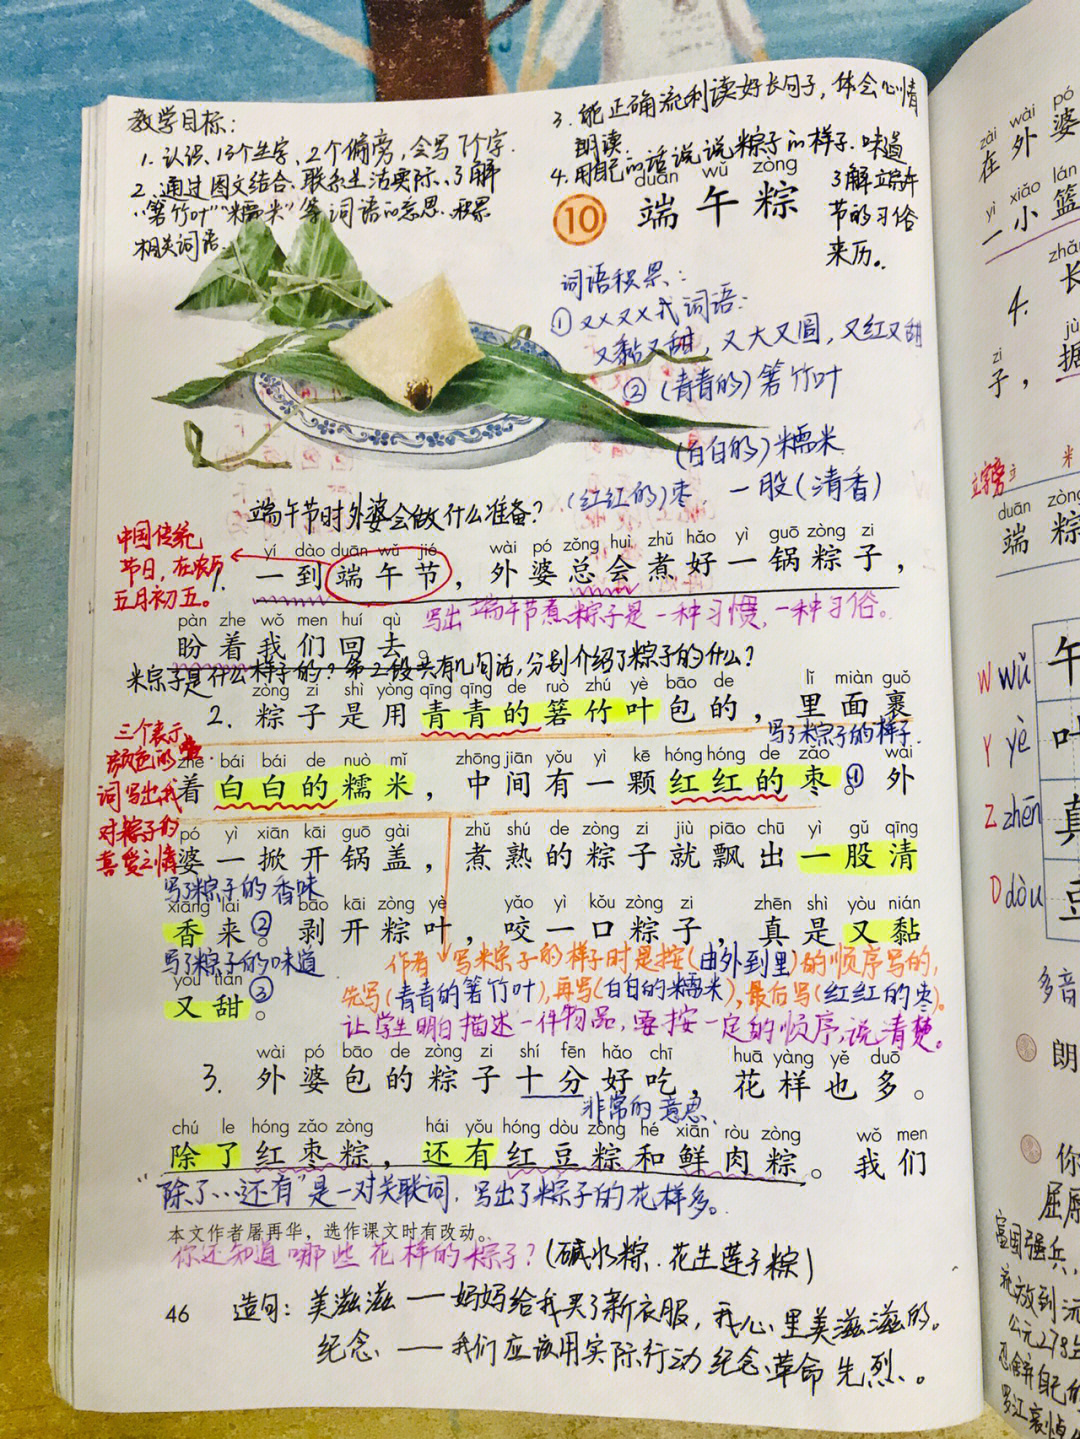 教学目标:
1. 认识13个生字、2个偏旁,会写7个字.
2. 通过图文结合、联系生活实际、了解
“箬竹叶”“糯米”等词语的意思.积累
相关词语.
3. 能正确流利读好长句子,体会心情
朗读.
4. 用自己的话说说粽子的样子.味道
了解端午
节的习俗
来历。
duān wǔ zòng
10 端午粽
词语积累:
① 又X又X式词语:
又黏又甜,又大又圆,又红又甜
② (青青的)箬竹叶
(白白的)糯米
(红红的)枣. 一股(清香)
端午节时外婆会做什么准备?
中国传统
节日,在农历
五月初五。
yí dào duān wǔ jié wài pó zǒng huì zhǔ hǎo yì guō zòng zi
1. 一到端午节,外婆总会煮好一锅粽子,
写出端午节煮粽子是一种习惯,一种习俗。
pàn zhe wǒ men huí qù
盼着我们回去。
粽子是什么样子的?第2段共有几句话,分别介绍了粽子的什么?
zòng zi shì yòng qīng qīng de ruò zhú yè bāo de lǐ miàn guǒ
2. 粽子是用青青的箬竹叶包的,里面裹
写了粽子的样子.
三个表示
颜色的
词写出我
对粽子的
喜爱之情
zhe bái bái de nuò mǐ zhōng jiān yǒu yì kē hóng hóng de zǎo wài
着白白的糯米,中间有一颗红红的枣。① 外
pó yì xiān kāi guō gài zhǔ shú de zòng zi jiù piāo chū yì gǔ qīng
婆一掀开锅盖,煮熟的粽子就飘出一股清
写了粽子的香味
xiāng lái bāo kāi zòng yè yǎo yì kǒu zòng zi zhēn shì yòu nián
香来。② 剥开粽叶,咬一口粽子,真是又黏
写了粽子的味道
yòu tián
又甜。③
作者写粽子的样子时是按(由外到里)的顺序写的,
先写(青青的箬竹叶),再写(白白的糯米),最后写(红红的枣)。
让学生明白描述一件物品,要按一定的顺序,说清楚。
wài pó bāo de zòng zi shí fēn hǎo chī huā yàng yě duō
3. 外婆包的粽子十分好吃,花样也多。
非常的意思.
chú le hóng zǎo zòng hái yǒu hóng dòu zòng hé xiān ròu zòng wǒ men
除了红枣粽,还有红豆粽和鲜肉粽。我们
“除了…还有”是一对关联词.写出了粽子的花样多。
本文作者屠再华,选作课文时有改动。
你还知道哪些花样的粽子?(碱水粽.花生莲子粽)
46
造句:美滋滋——妈妈给我买了新衣服,我心里美滋滋的。
纪念——我们应该用实际行动纪念革命先烈。
zài wài pó
在外婆
yì xiǎo lán
一小篮
4. 长
zi jù
子,据
立字旁 立 米
duān zòng
端粽
W wǔ 午
Y yè 叶
Z zhēn 真
D dòu 豆
多音
朗
你
屈原
富国强兵,
流放到沅
公元278年
忍舍弃自己的